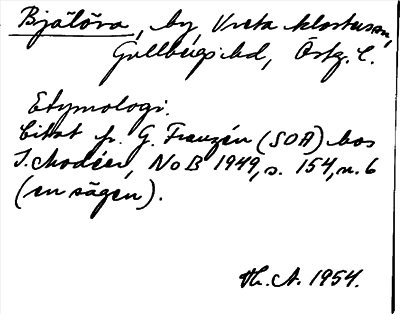 Bjälöva, by, Vreta klosters sn,
Gullbergs hd, Östg. l.
Etymologi.
Citat fr. G. Franzén (SOA) hos
I. Modéer, NoB 1949, s. 154, n. 6
(en sägen).
Th. A. 1954.